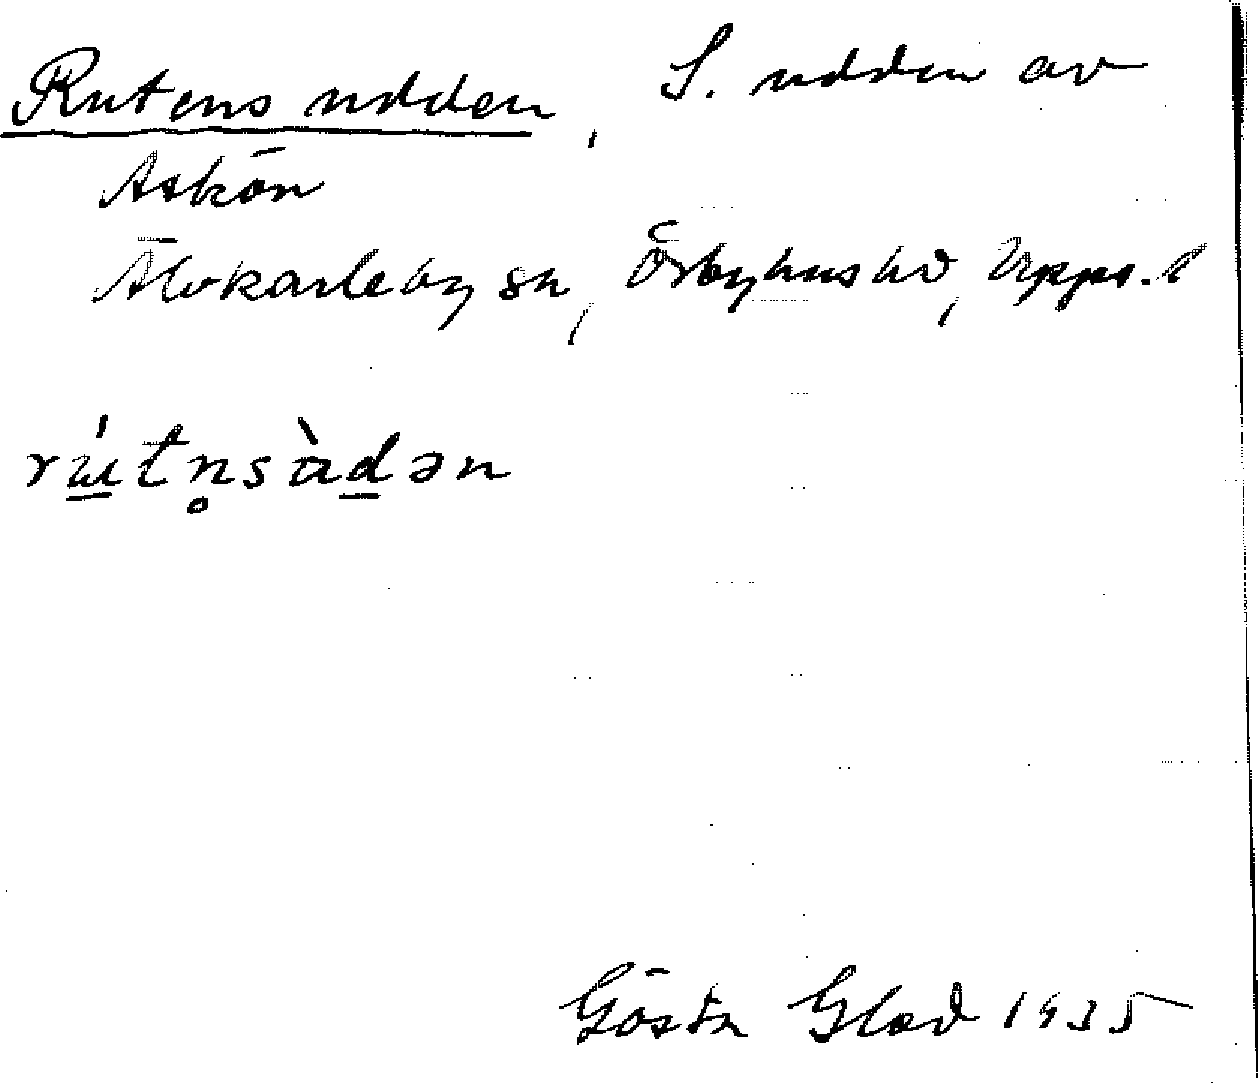 Rutens udden, S. udden av
Askön
Älvkarleby sn, Örbyhus hd, Upps. l
rú̱tn̥sàḏən
Gösta Glad 1935